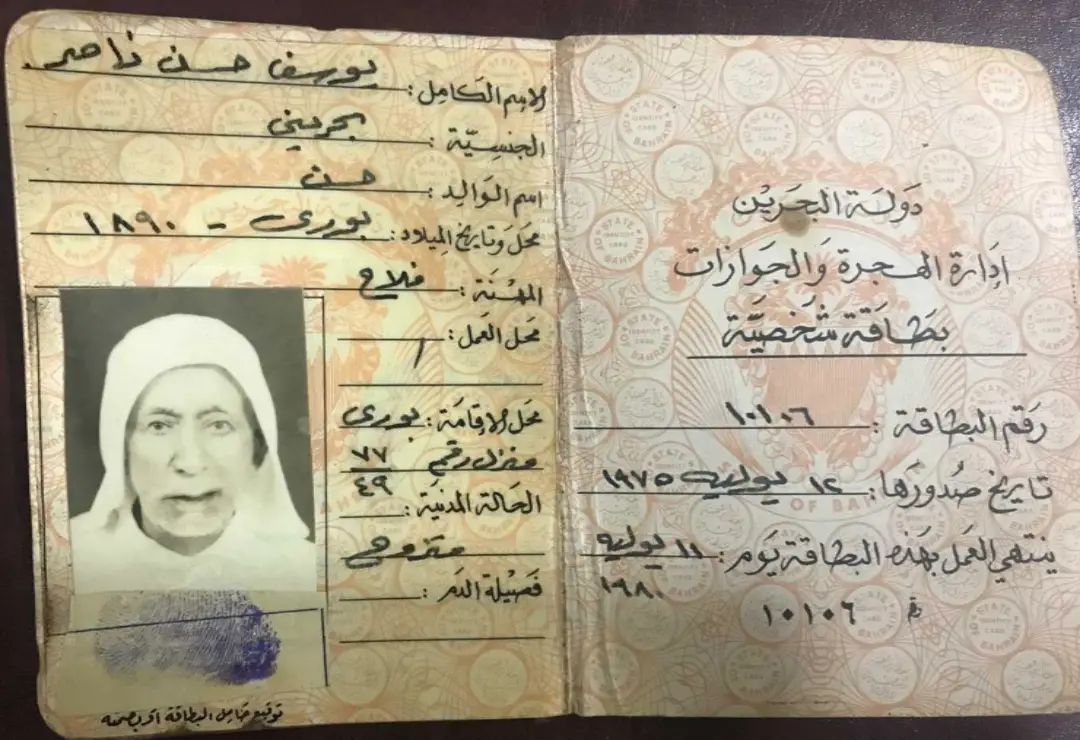 دَولة البَحرَيْن
اِدَارة الهجرة وَالجَوازات
بطَاقَة شَخصيَّة
رَقم البطَاقة : ١٠١٠٦
تاريخ صُدورَها : ١٢ يوليه ١٩٧٥
ينتهي العَمل بهَذه البطَاقة يَوم : ١١ يوليه
١٩٨٠
١٠١٠٦
الاسم الكَامِل : يوسف حسن ناصر
الجنسِيّة : بحريني
اسم الوَالِد : حسن
محَل وَتاريخ المِيلاد : بوري - ١٨٩٠
المهْنَة : فلاح
محَل العَمل : /
محَل الاِقامَة : بوري
منزل رقم ٧٧
٤٩
الحَالة المدنيَة :
متزوج
فَصيْلة الدَم :
توقيع حَامِل البطاقة أو بصمته
STATE OF BAHRAIN
IDENTITY CARD